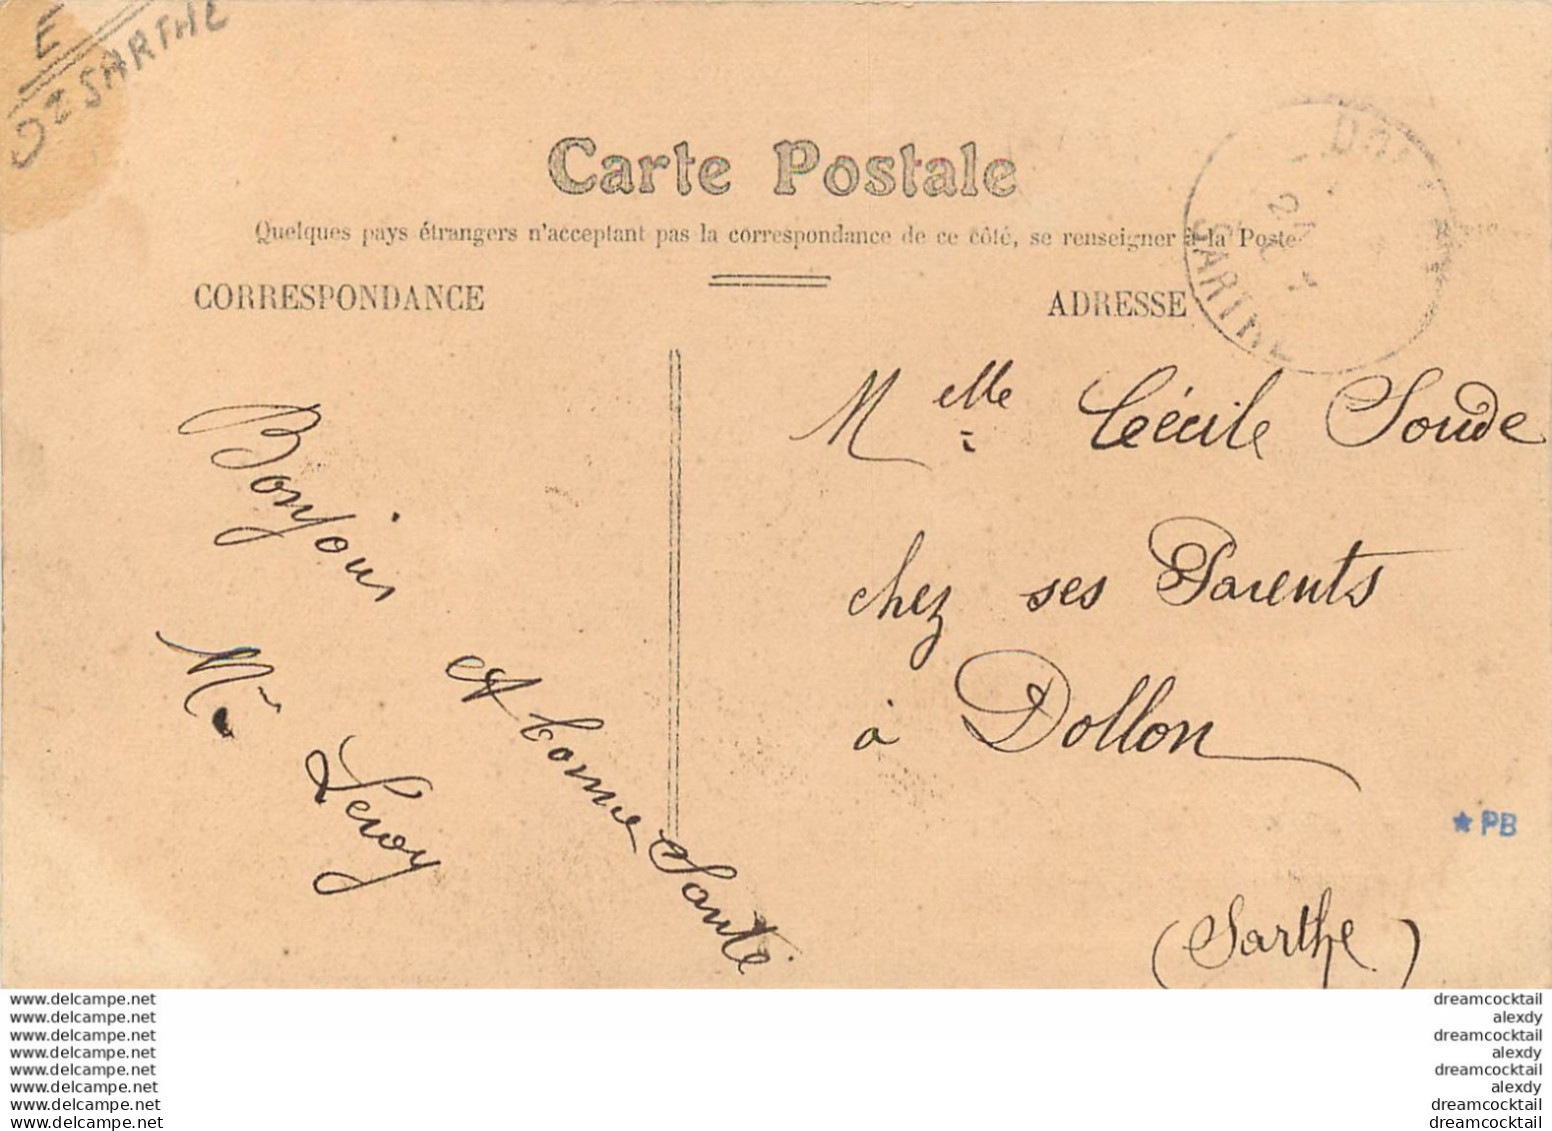 E
Dt SARTHE
Carte Postale
Quelques pays étrangers n'acceptant pas la correspondance de ce côté, se renseigner à la Poste
CORRESPONDANCE
ADRESSE
SARTHE
Bonjour
et bonne Santé
Leroy
Melle Cécile Soude
chez ses Parents
à Dollon
(Sarthe)
★ PB
www.delcampe.net
www.delcampe.net
www.delcampe.net
www.delcampe.net
www.delcampe.net
www.delcampe.net
www.delcampe.net
www.delcampe.net
dreamcocktail
alexdy
dreamcocktail
alexdy
dreamcocktail
alexdy
dreamcocktail
dreamcocktail